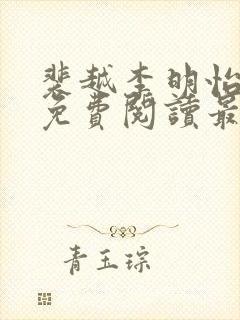 裴越李明怡
免費閱讀最
青玉琮